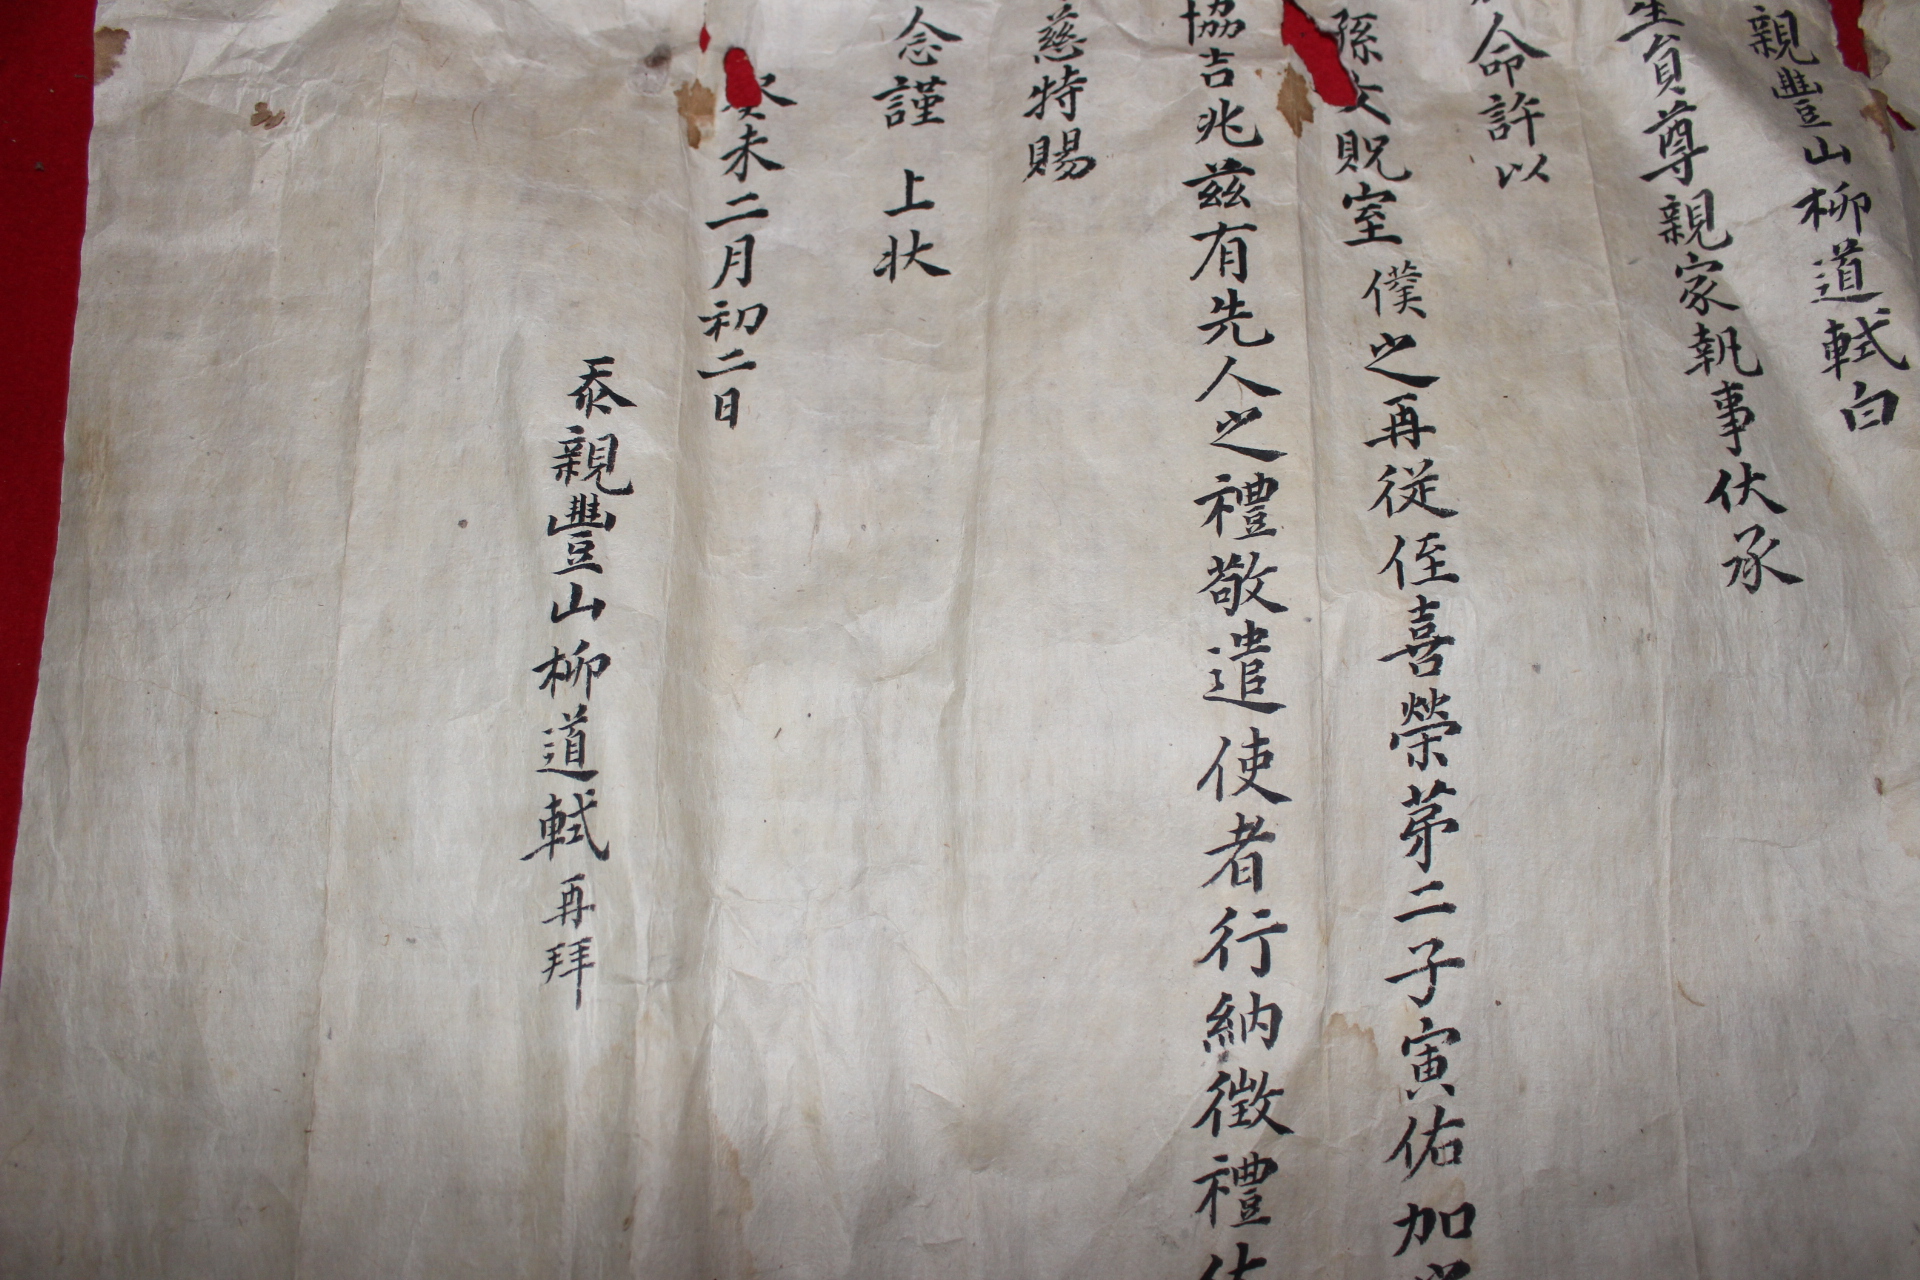 親豐山柳道軾白
生員尊親家執事伏承
命許以
孫女貺室僕之再從侄喜榮苐二子寅佑加
協吉兆茲有先人之禮敬遣使者行納徵禮伏
慈特賜
念謹 上狀
癸未二月初二日
忝親豐山柳道軾再拜